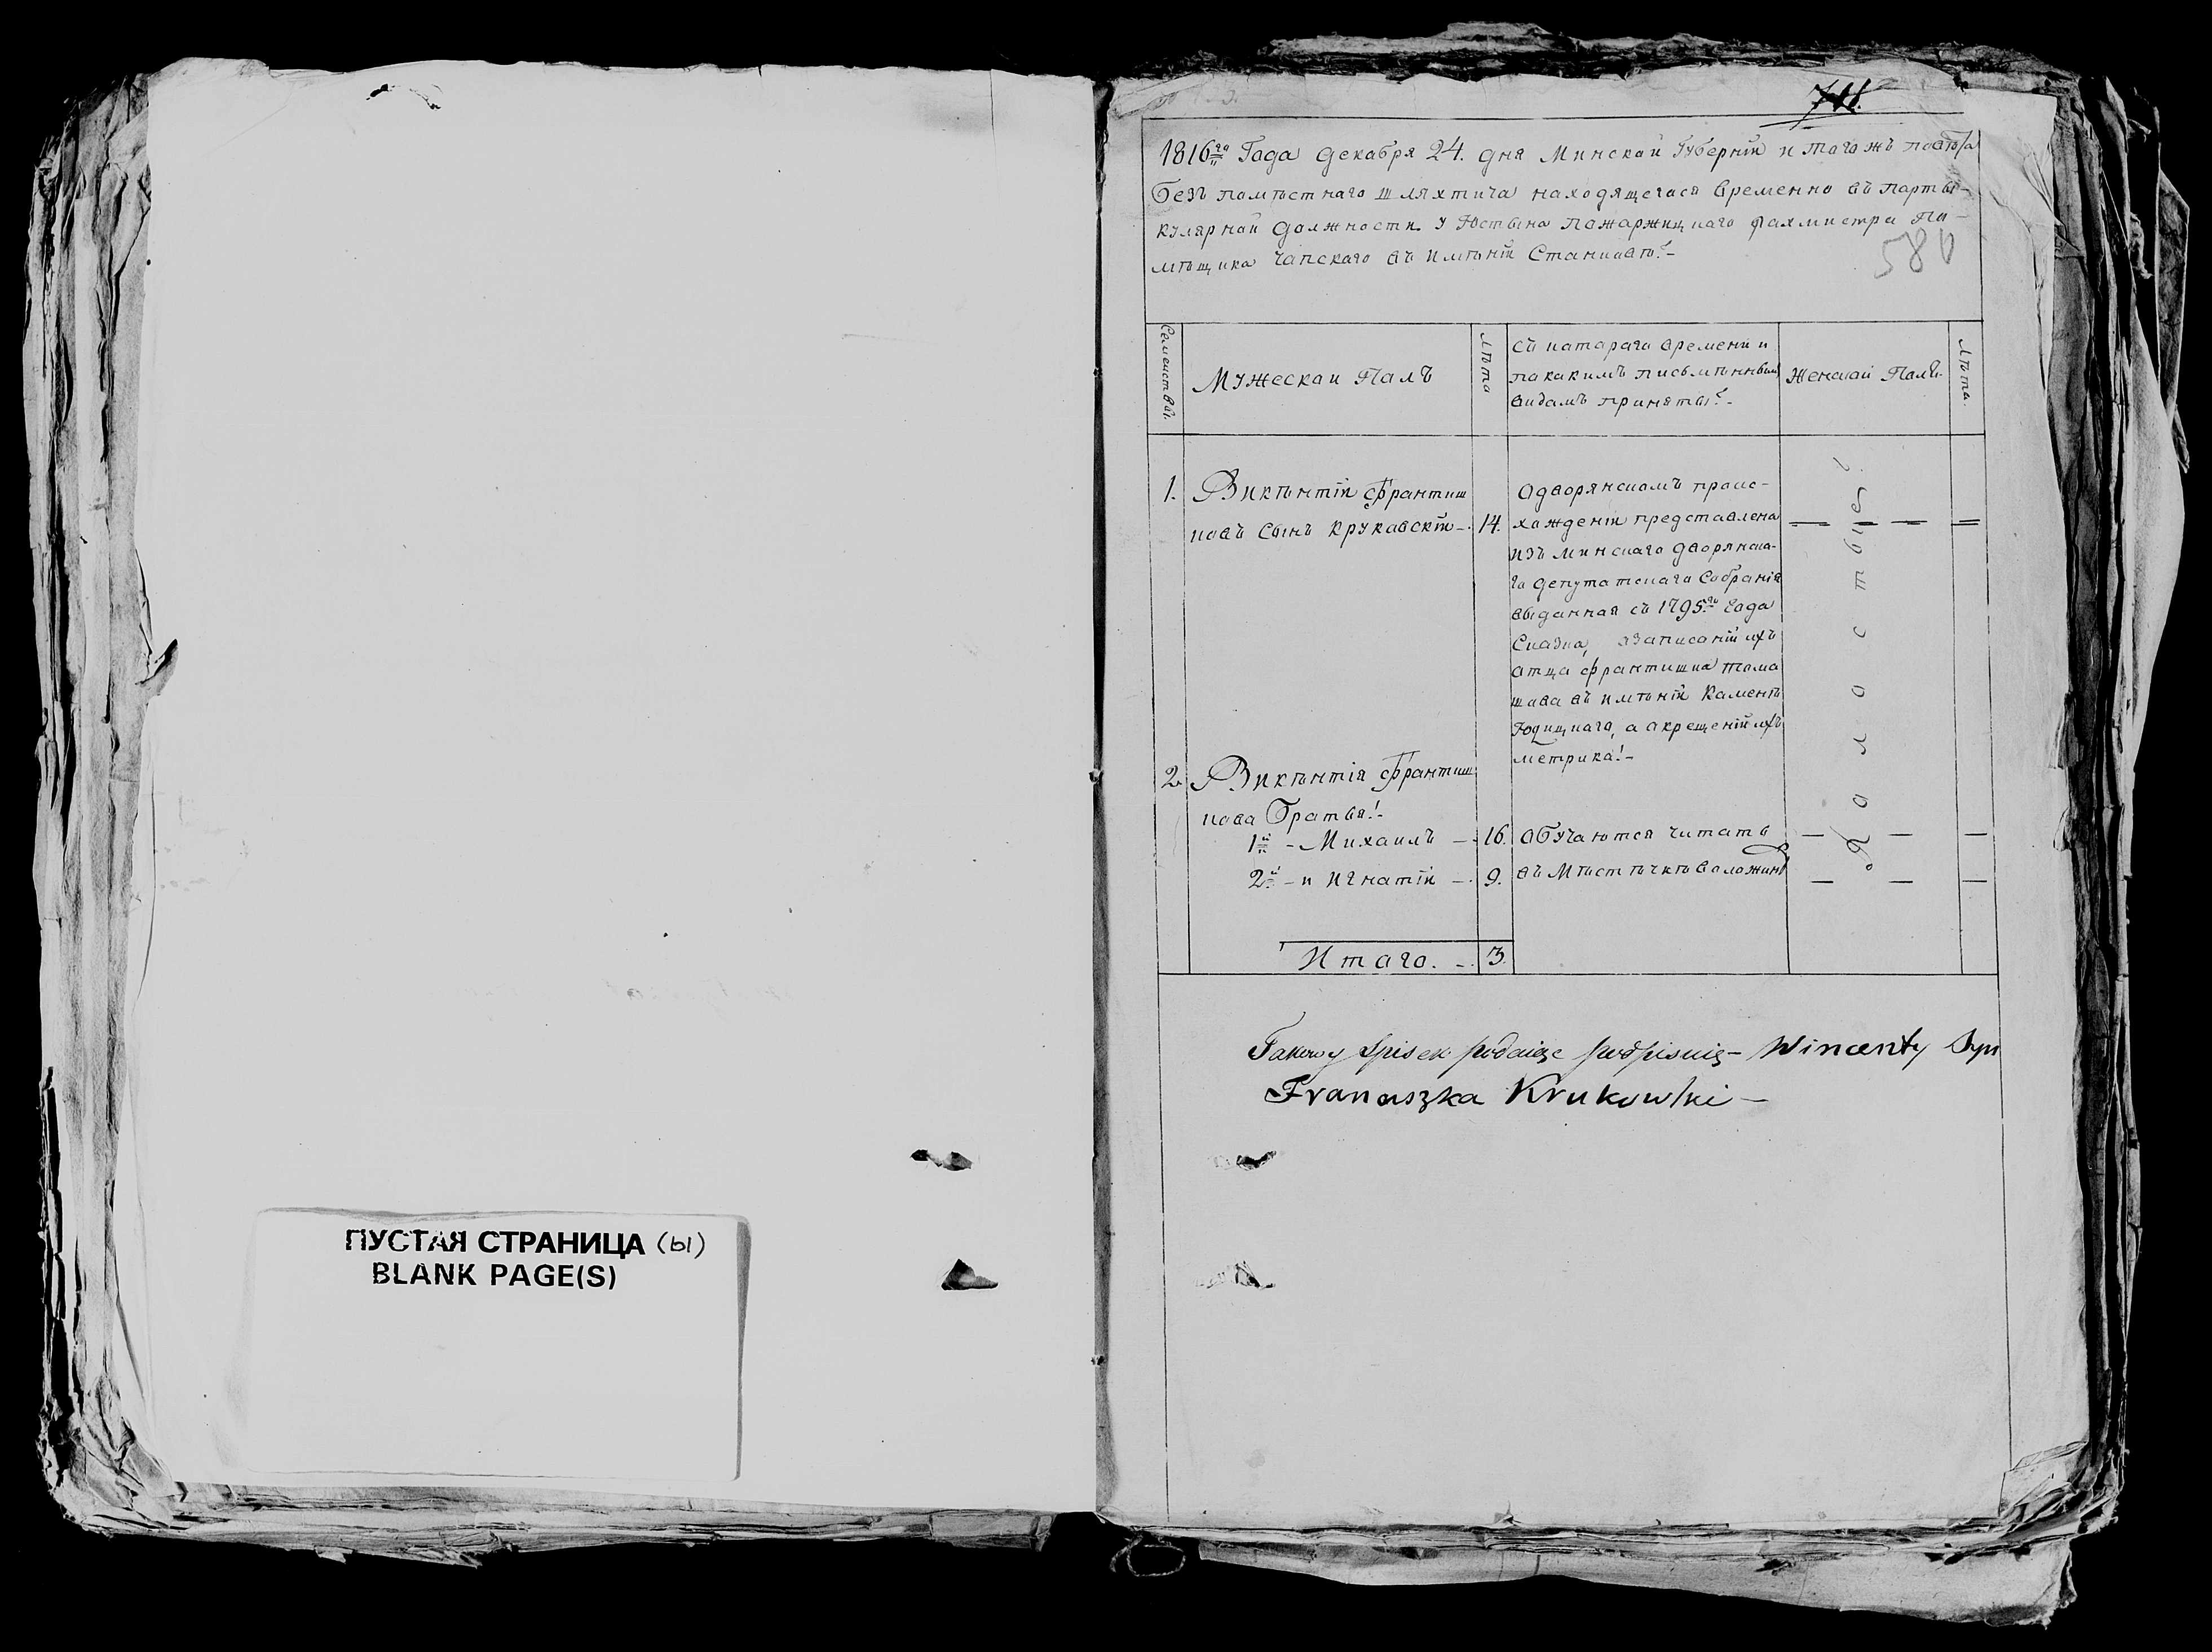 711
1816го Года декабря 24. дня Минской Губерніи и тогожъ повѣта
безъ помѣстнаго шляхтича находящегося временно въ парты-
кулярной должности у Юстына пожарищнаго рахмистра По-
мѣщика Чапскаго въ имѣніи Станковѣ:-
580
Семействы.
Мужескаи Палъ
Лѣта
Съ катарага времени и
па какимъ письмѣннымъ
видамъ приняты?-
Женскай Палъ.
Лѣта.
1. Викѣнтій Франтиш
ковъ Сынъ Крукавскій -. 14.
Одворянскомъ проис-
хожденіи представлена
изъ минскаго дворянска-
го депутатскаго Собранія
выданная съ 1795го Года
Сказка, озаписаніи ихъ
отца Франтишка тома
шава въ имѣніи Каменѣ
а окрещеніи ихъ
метрика!-
2. Викѣнтія Франтиш
кова Братья!-
1й - Михаилъ -. 16. обучаются читать
2й - и Игнатій -. 9. въ мѣстѣчкѣ Воложинѣ
Итаго. -. 3.
Takowy Spisek podaiąc podpisuię - Wincenty Syn
Franciszka Krukowski -
ПУСТАЯ СТРАНИЦА (Ы)
BLANK PAGE(S)